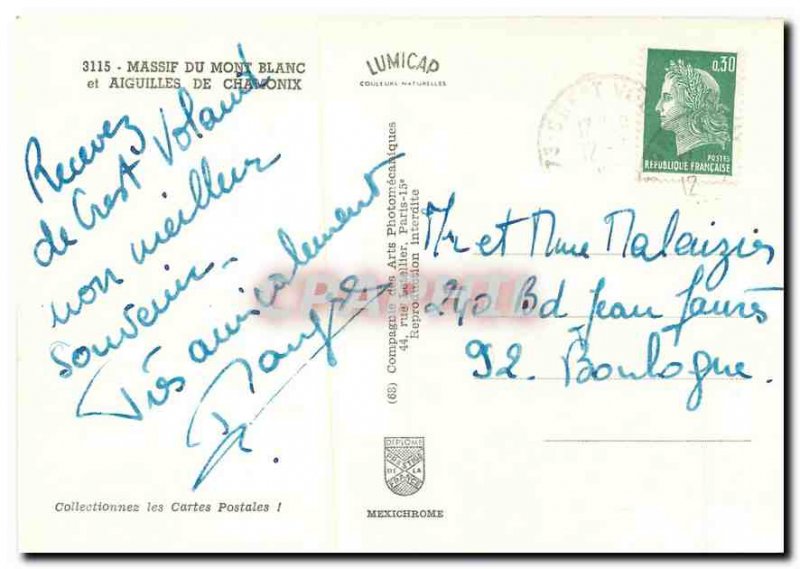 3115 - MASSIF DU MONT BLANC
et AIGUILLES DE CHAMONIX
Recevez
de Crest Voland
mon meilleur
souvenir.
Très amicalement
LUMICAP
COULEURS NATURELLES
0,30
POSTES
RÉPUBLIQUE FRANÇAISE
(68) Compagnie des Arts Photomécaniques
44, rue Letellier, Paris-15e
Reproduction interdite
Mr et Mme Malaizier
240 Bd Jean Jaurès
92. Boulogne.
DIPLOME
PRESTIGE
DE LA
FRANCE
MEXICHROME
Collectionnez les Cartes Postales !